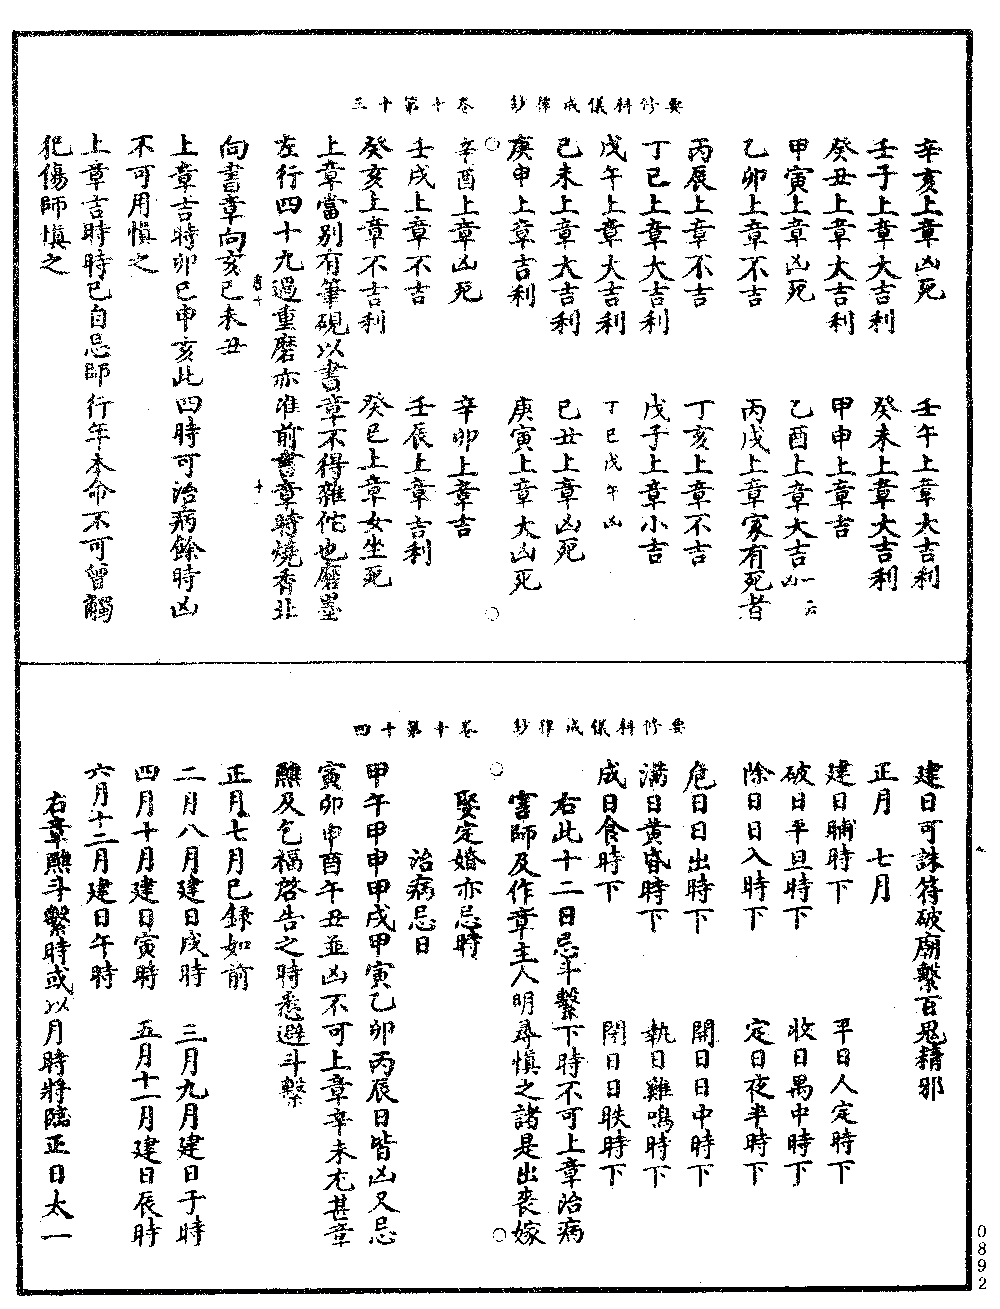 要修科儀戒律鈔　卷十第十三
辛亥上章凶死　壬午上章大吉利
壬子上章大吉利　癸未上章大吉利
癸丑上章大吉利　甲申上章吉
甲寅上章凶死　乙酉上章大吉一云凶
乙卯上章不吉　丙戌上章家有死者
丙辰上章不吉　丁亥上章不吉
丁巳上章大吉利　戊子上章小吉
戊午上章大吉利　丁巳戊午凶
己未上章大吉利　己丑上章凶死
庚申上章吉利　庚寅上章大凶死
辛酉上章凶死　辛卯上章吉
壬戌上章不吉　壬辰上章吉利
癸亥上章不吉利　癸巳上章女坐死
上章當別有筆硯以書章不得雜佗也磨墨
左行四十九過重磨亦准前書章時燒香北
向書章向亥巳未丑
上章吉時卯巳申亥此四時可治病餘時凶
不可用慎之
上章吉時時已自忌師行年本命不可曾觸
犯傷師慎之
要修科儀戒律鈔　卷十第十四
建日可誅符破廟繫百鬼精邪
正月　七月
建日晡時下　平日人定時下
破日平旦時下　收日禺中時下
除日日入時下　定日夜半時下
危日日出時下　開日日中時下
滿日黃昏時下　執日雞鳴時下
成日食時下　閉日日昳時下
右此十二日忌斗繫下時不可上章治病
害師及作章主人明尋慎之諸是出喪嫁
娶定婚亦忌時
治病忌日
甲午甲申甲戌甲寅乙卯丙辰日皆凶又忌
寅卯申酉午丑並凶不可上章辛未尤甚章
醮及乞福啓告之時悉避斗繫
正月七月已錄如前
二月八月建日戌時　三月九月建日子時
四月十月建日寅時　五月十一月建日辰時
六月十二月建日午時
右章醮斗繫時或以月時將臨正日太一
0892